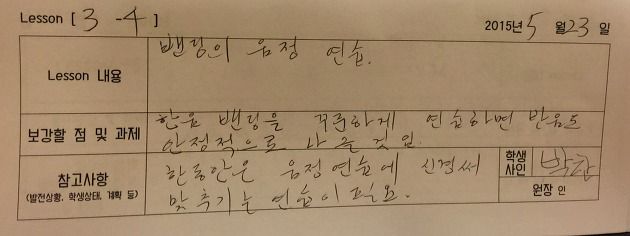 Lesson [ 3 - 4 ] 2015년 5 월 23 일
Lesson 내용
밴딩의 음정 연습.
보강할 점 및 과제
한음 밴딩을 꾸준하게 연습하면 반음도
안정적으로 나올것임.
참고사항
(발전상황, 학생상태, 계획 등)
한동안은 음정연습에 신경써
맞추기는 연습이 필요.
학생
사인
원장 인